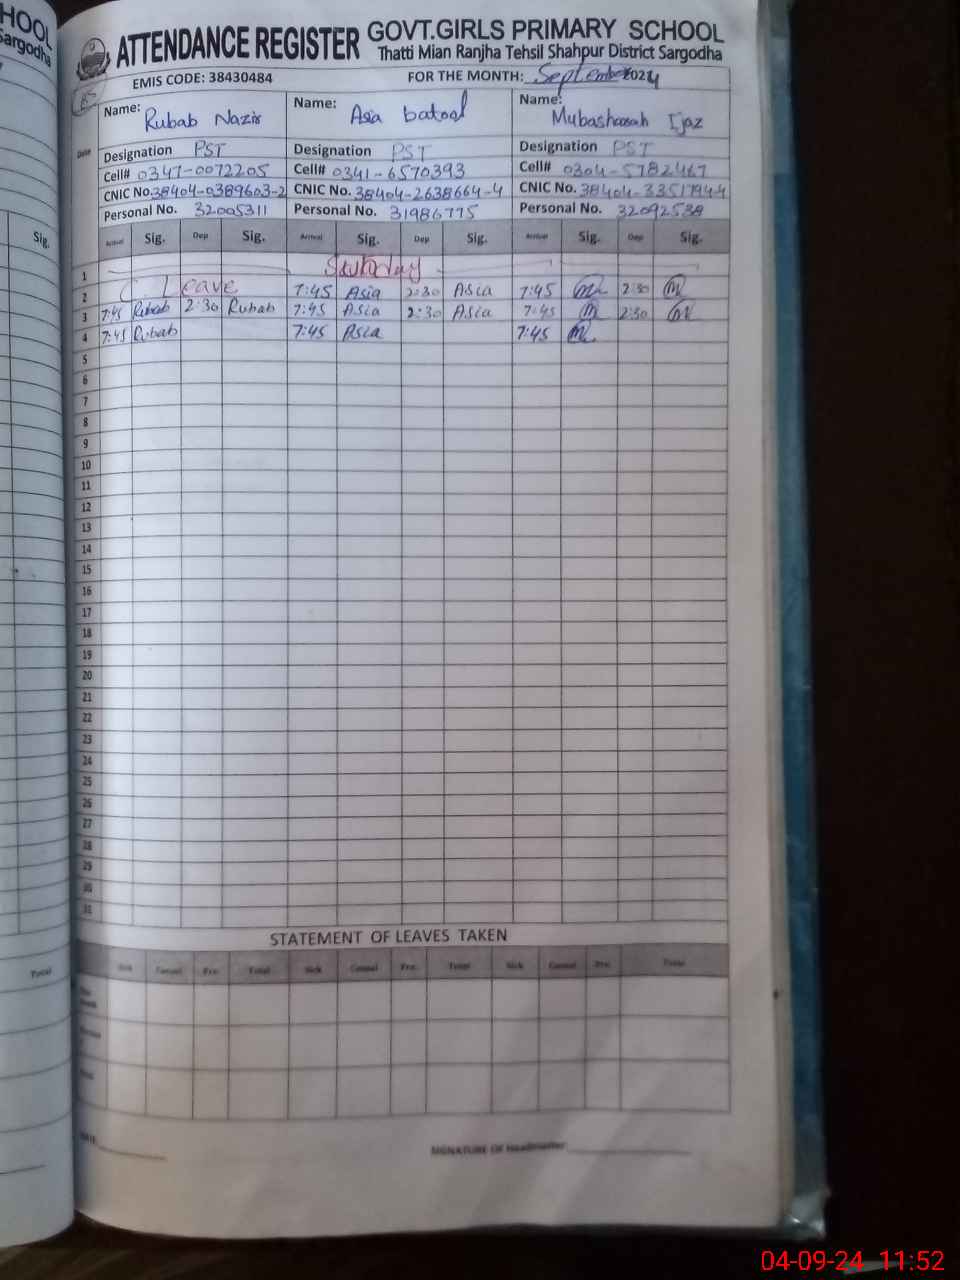 HOOL
Sargodha
Sig.
Total
ATTENDANCE REGISTER GOVT.GIRLS PRIMARY SCHOOL
Thatti Mian Ranjha Tehsil Shahpur District Sargodha
EMIS CODE: 38430484 FOR THE MONTH: September 2024
Name: Rubab Nazir Name: Asia batool Name: Mubasharah Ijaz
Date
Designation PST Designation PST Designation PST
Cell# 0347-0072205 Cell# 0341-6570393 Cell# 0304-5782467
CNIC No. 38404-0389603-2 CNIC No. 38404-2638664-4 CNIC No. 38404-3351794-4
Personal No. 32005311 Personal No. 31986775 Personal No. 32092538
Arrival Sig. Dep Sig. Arrival Sig. Dep Sig. Arrival Sig. Dep Sig.
1
2 Leave 7:45 Asia 2:30 Asia 7:45 2:30
3 7:45 Rubab 2:30 Rubab 7:45 Asia 2:30 Asia 7:45 2:30
4 7:45 Rubab 7:45 Asia 7:45
5
6
7
8
9
10
11
12
13
14
15
16
17
18
19
20
21
22
23
24
25
26
27
28
29
30
31
STATEMENT OF LEAVES TAKEN
Sick Casual Pre. Total Sick Casual Pre. Total Sick Casual Pre. Total
DATE SIGNATURE OF Headmaster
04-09-24 11:52